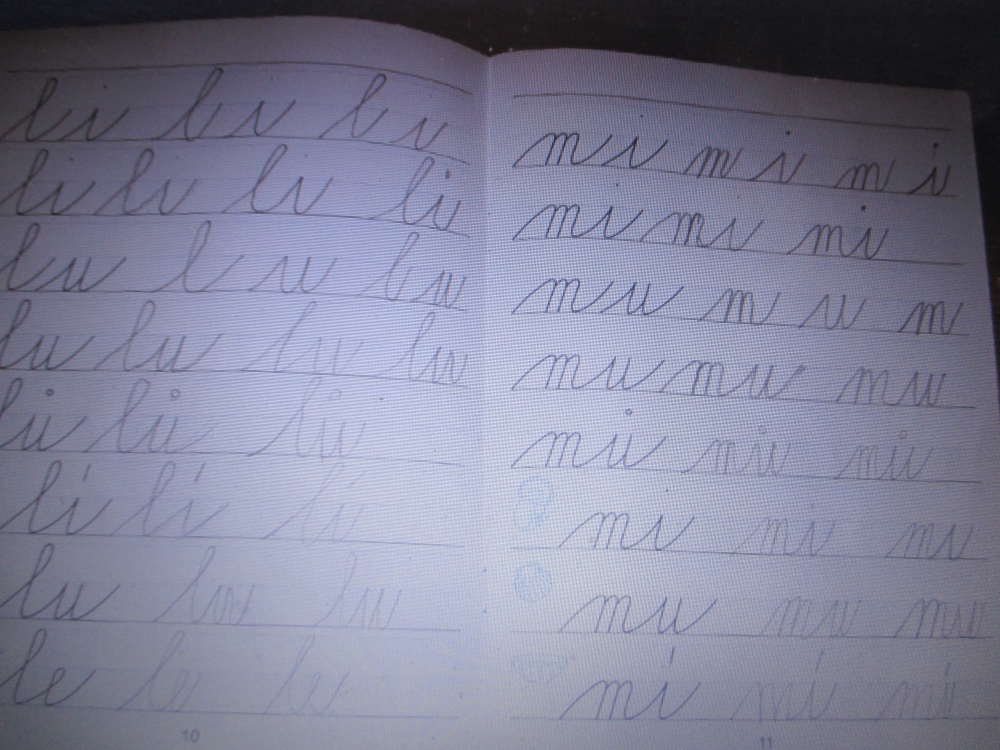 l i l i l i
li li li li
l u l u l u
lu lu lu lu
lů lů lů
lí lí lí
lu lu lu
le le le
10
m i m i m i
mi mi mi
m u m u m
mu mu mu
mů mů mů
mi mi mi
mu mu mu
mí mí mí
11